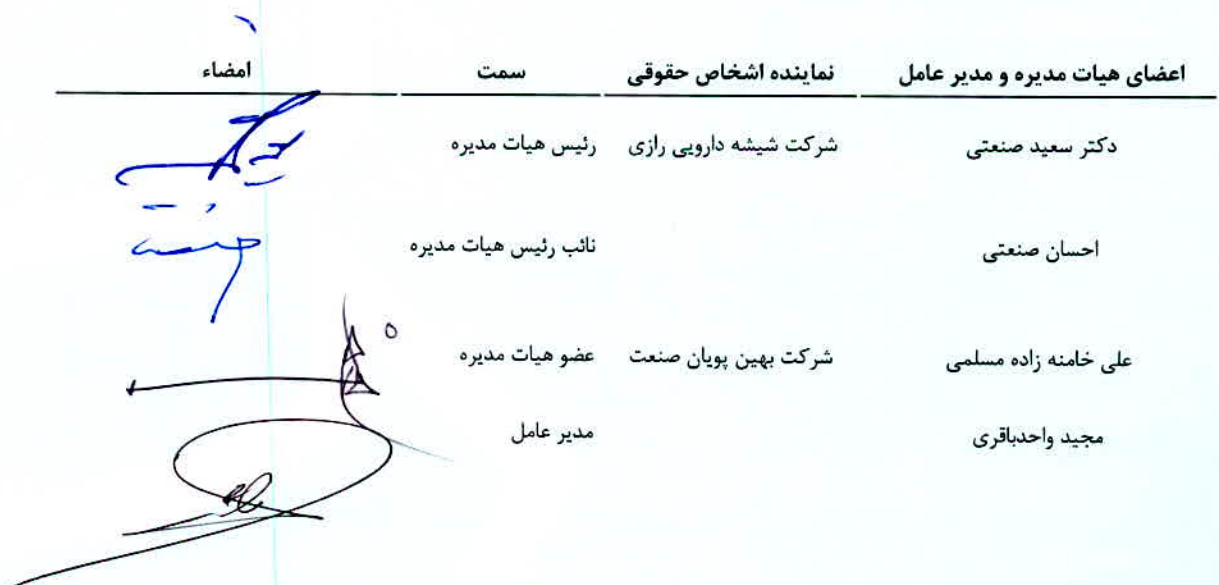 اعضای هیات مدیره و مدیر عامل نماینده اشخاص حقوقی سمت امضاء
دکتر سعید صنعتی شرکت شیشه دارویی رازی رئیس هیات مدیره
احسان صنعتی نائب رئیس هیات مدیره
علی خامنه زاده مسلمی شرکت بهین پویان صنعت عضو هیات مدیره
مجید واحدباقری مدیر عامل